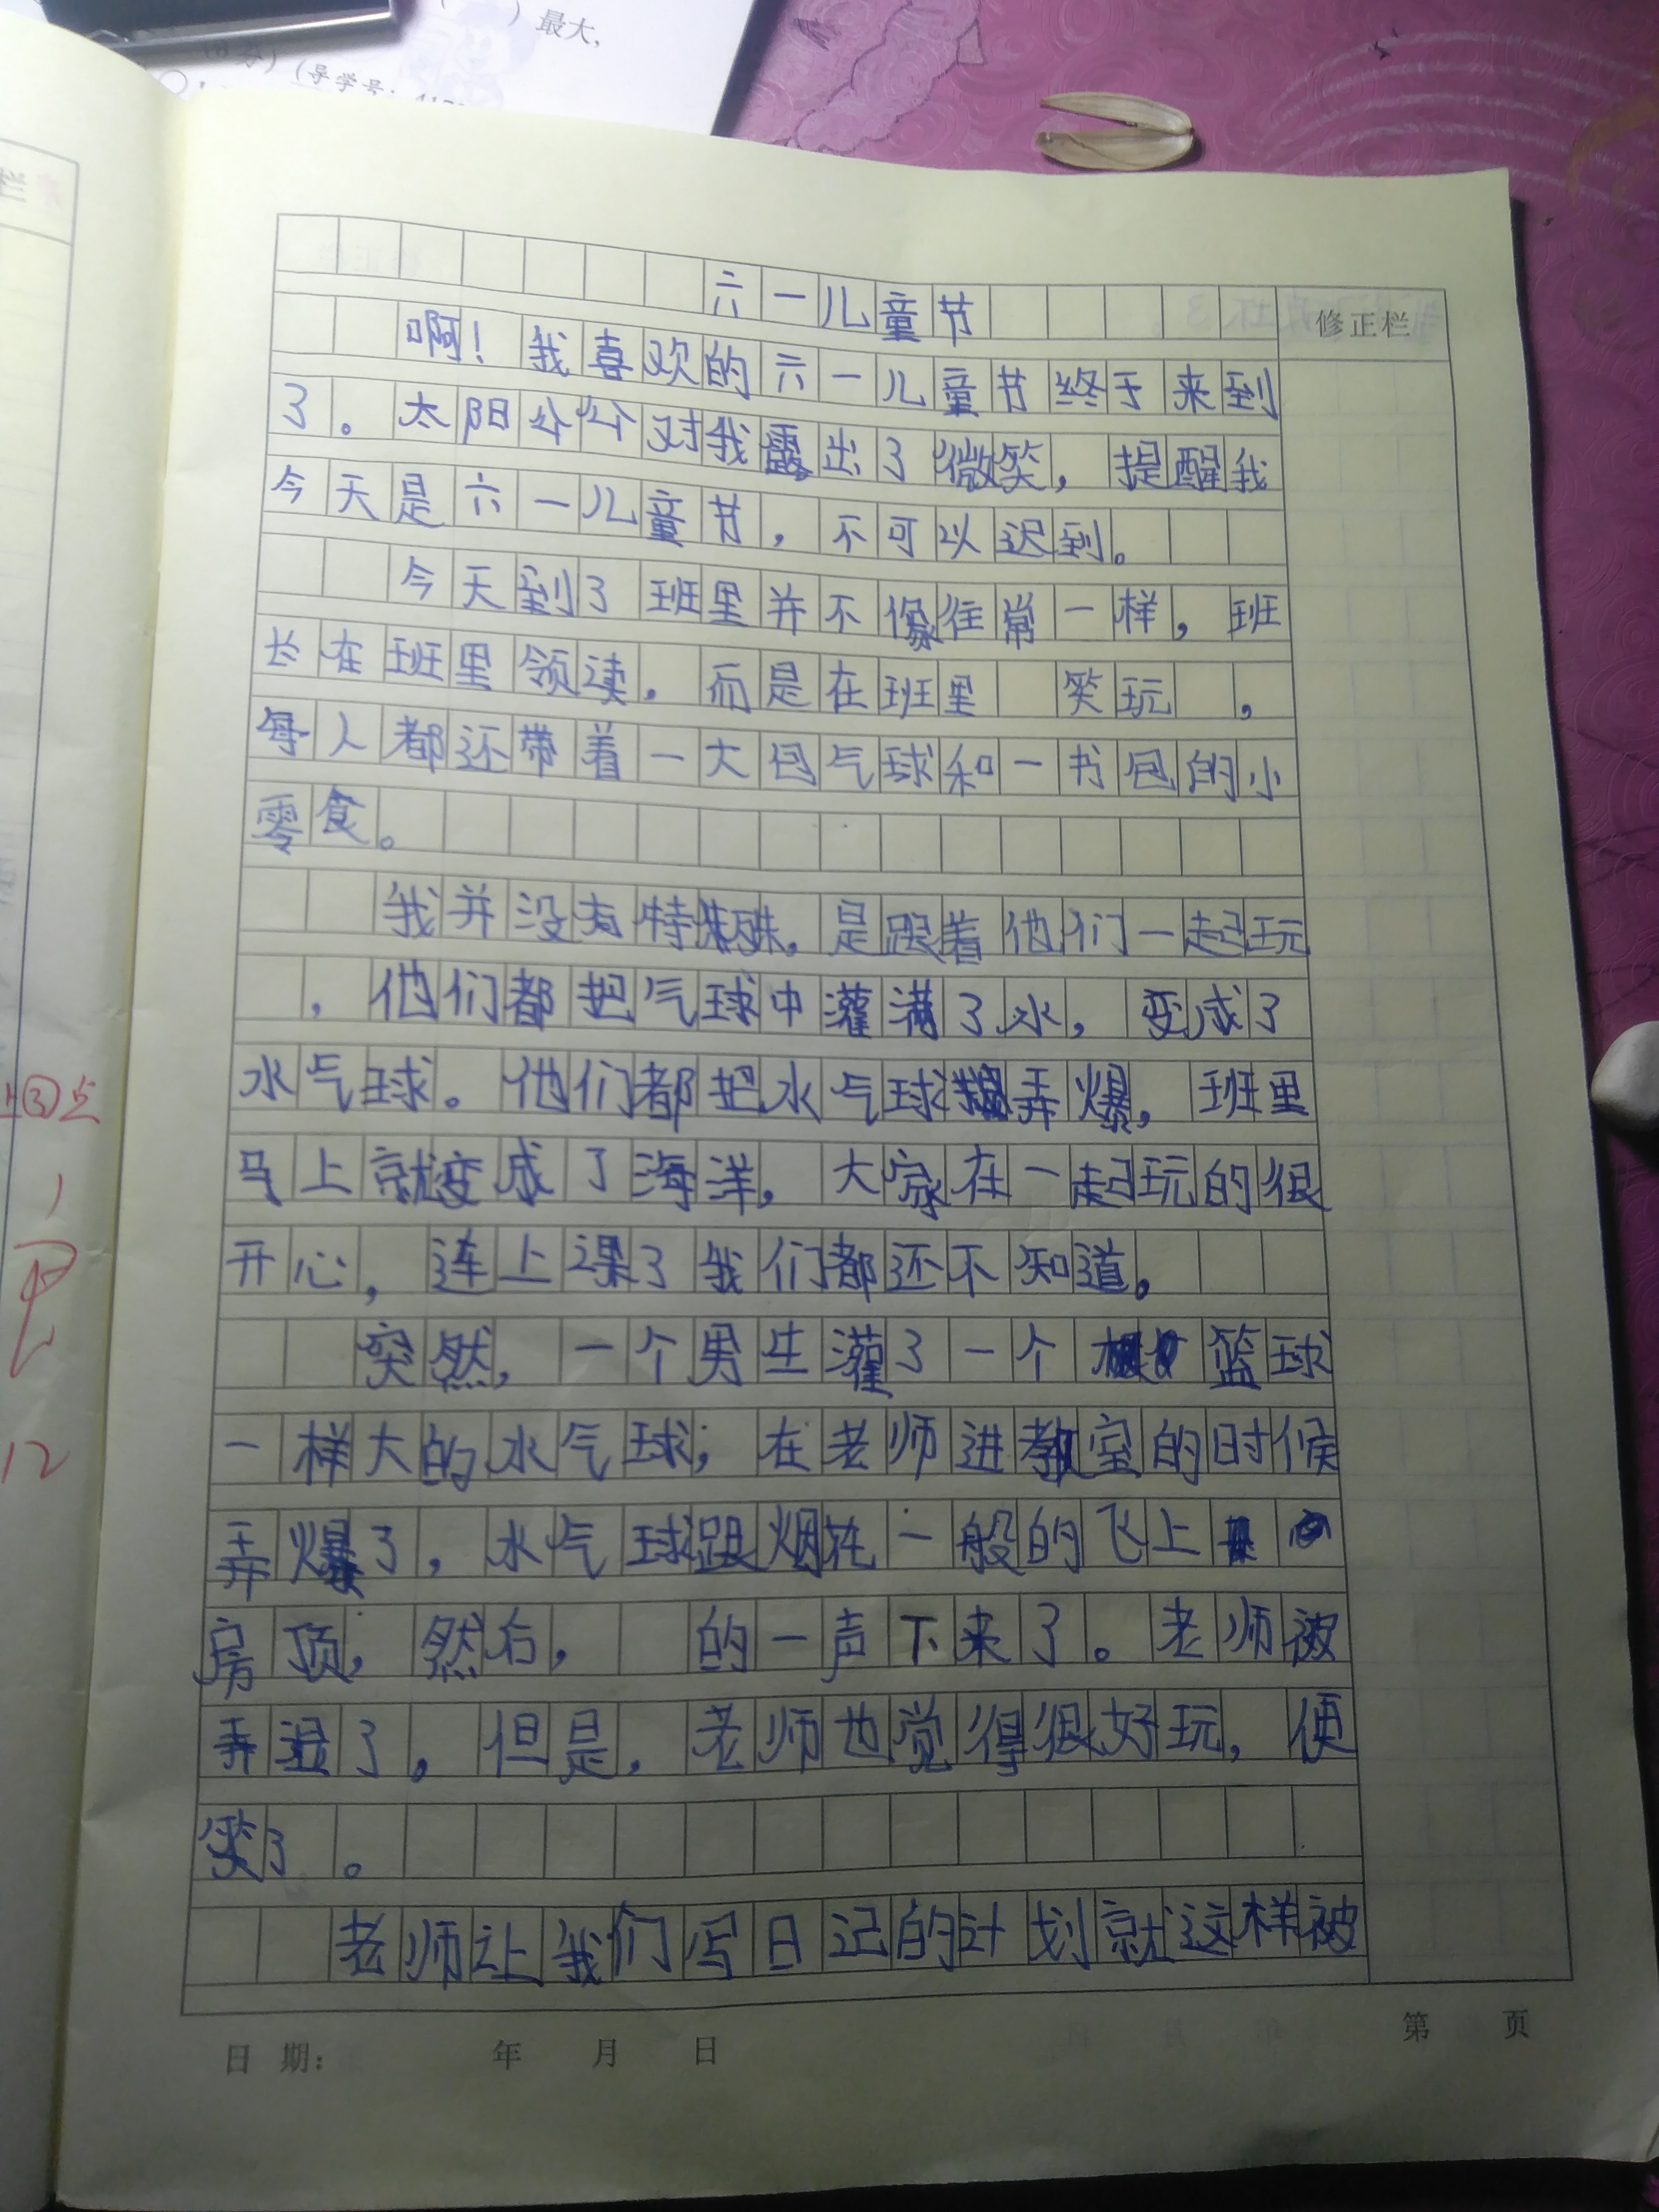 ）最大，
分）（导学号：
栏
六一儿童节
修正栏
啊！我喜欢的六一儿童节终于来到
了。太阳公公对我露出了微笑，提醒我
今天是六一儿童节，不可以迟到。
今天到了班里并不像往常一样，班
长在班里领读，而是在班里 笑玩 ，
每人都还带着一大包气球和一书包的小
零食。
我并没有特殊，是跟着他们一起玩
，他们都把气球中灌满了水，变成了
水气球。他们都把水气球弄爆，班里
马上就变成了海洋，大家在一起玩的很
开心，连上课了我们都还不知道。
突然，一个男生灌了一个篮球
一样大的水气球，在老师进教室的时候
弄爆了，水气球跟烟花一般的飞上
房顶，然后， 的一声下来了。老师被
弄湿了。但是，老师也觉得很好玩，便
笑了。
老师让我们写日记的计划就这样被
日期： 年 月 日
第 页
点
12